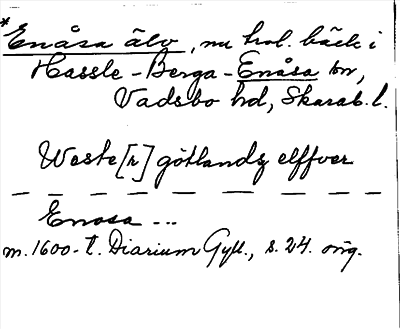 *Enåsa älv, nu trol. bäck i
Hassle-Berga-Enåsa snr,
Vadsbo hd, Skarab. l.
Weste[r]götlandz elffver
Enosa ...
m. 1600-t. Diarium Gyll., s. 24. orig.